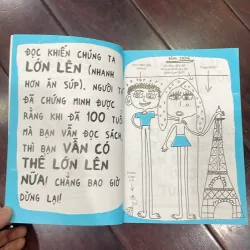 ĐỌC KHIẾN CHÚNG TA
LỚN LÊN (NHANH
HƠN ĂN SÚP). NGƯỜI TA
ĐÃ CHỨNG MINH ĐƯỢC
RẰNG KHI ĐÃ 100 TUỔI
MÀ BẠN VẪN ĐỌC SÁCH
THÌ BẠN VẪN CÓ
THỂ LỚN LÊN
NỮA! CHẲNG BAO GIỜ
DỪNG LẠI!